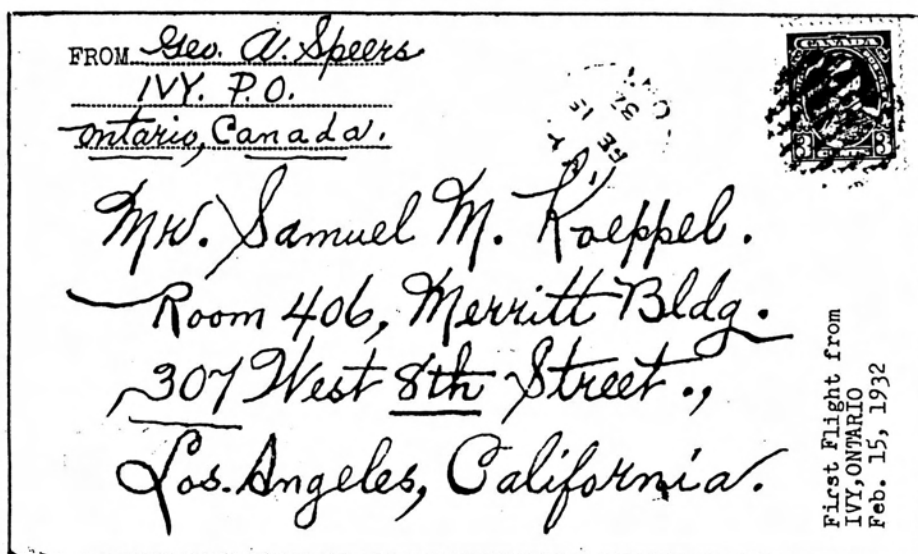 FROM Geo. A. Speers
IVY. P.O.
Ontario, Canada.
CANADA
POSTAGE
3 CENTS 3
FE 15
32
ONT
Mr. Samuel M. Koeppel.
Room 406, Merritt Bldg.
307 West 8th Street.,
Los. Angeles, California.
First Flight from
IVY, ONTARIO
Feb. 15, 1932